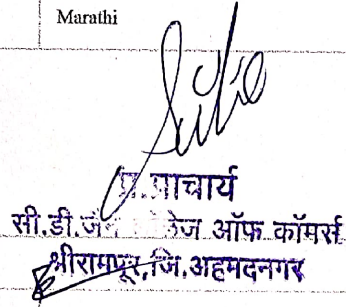 Marathi
प्र.प्राचार्य
सी.डी.जैन कॉलेज ऑफ कॉमर्स
श्रीरामपूर,जि.अहमदनगर